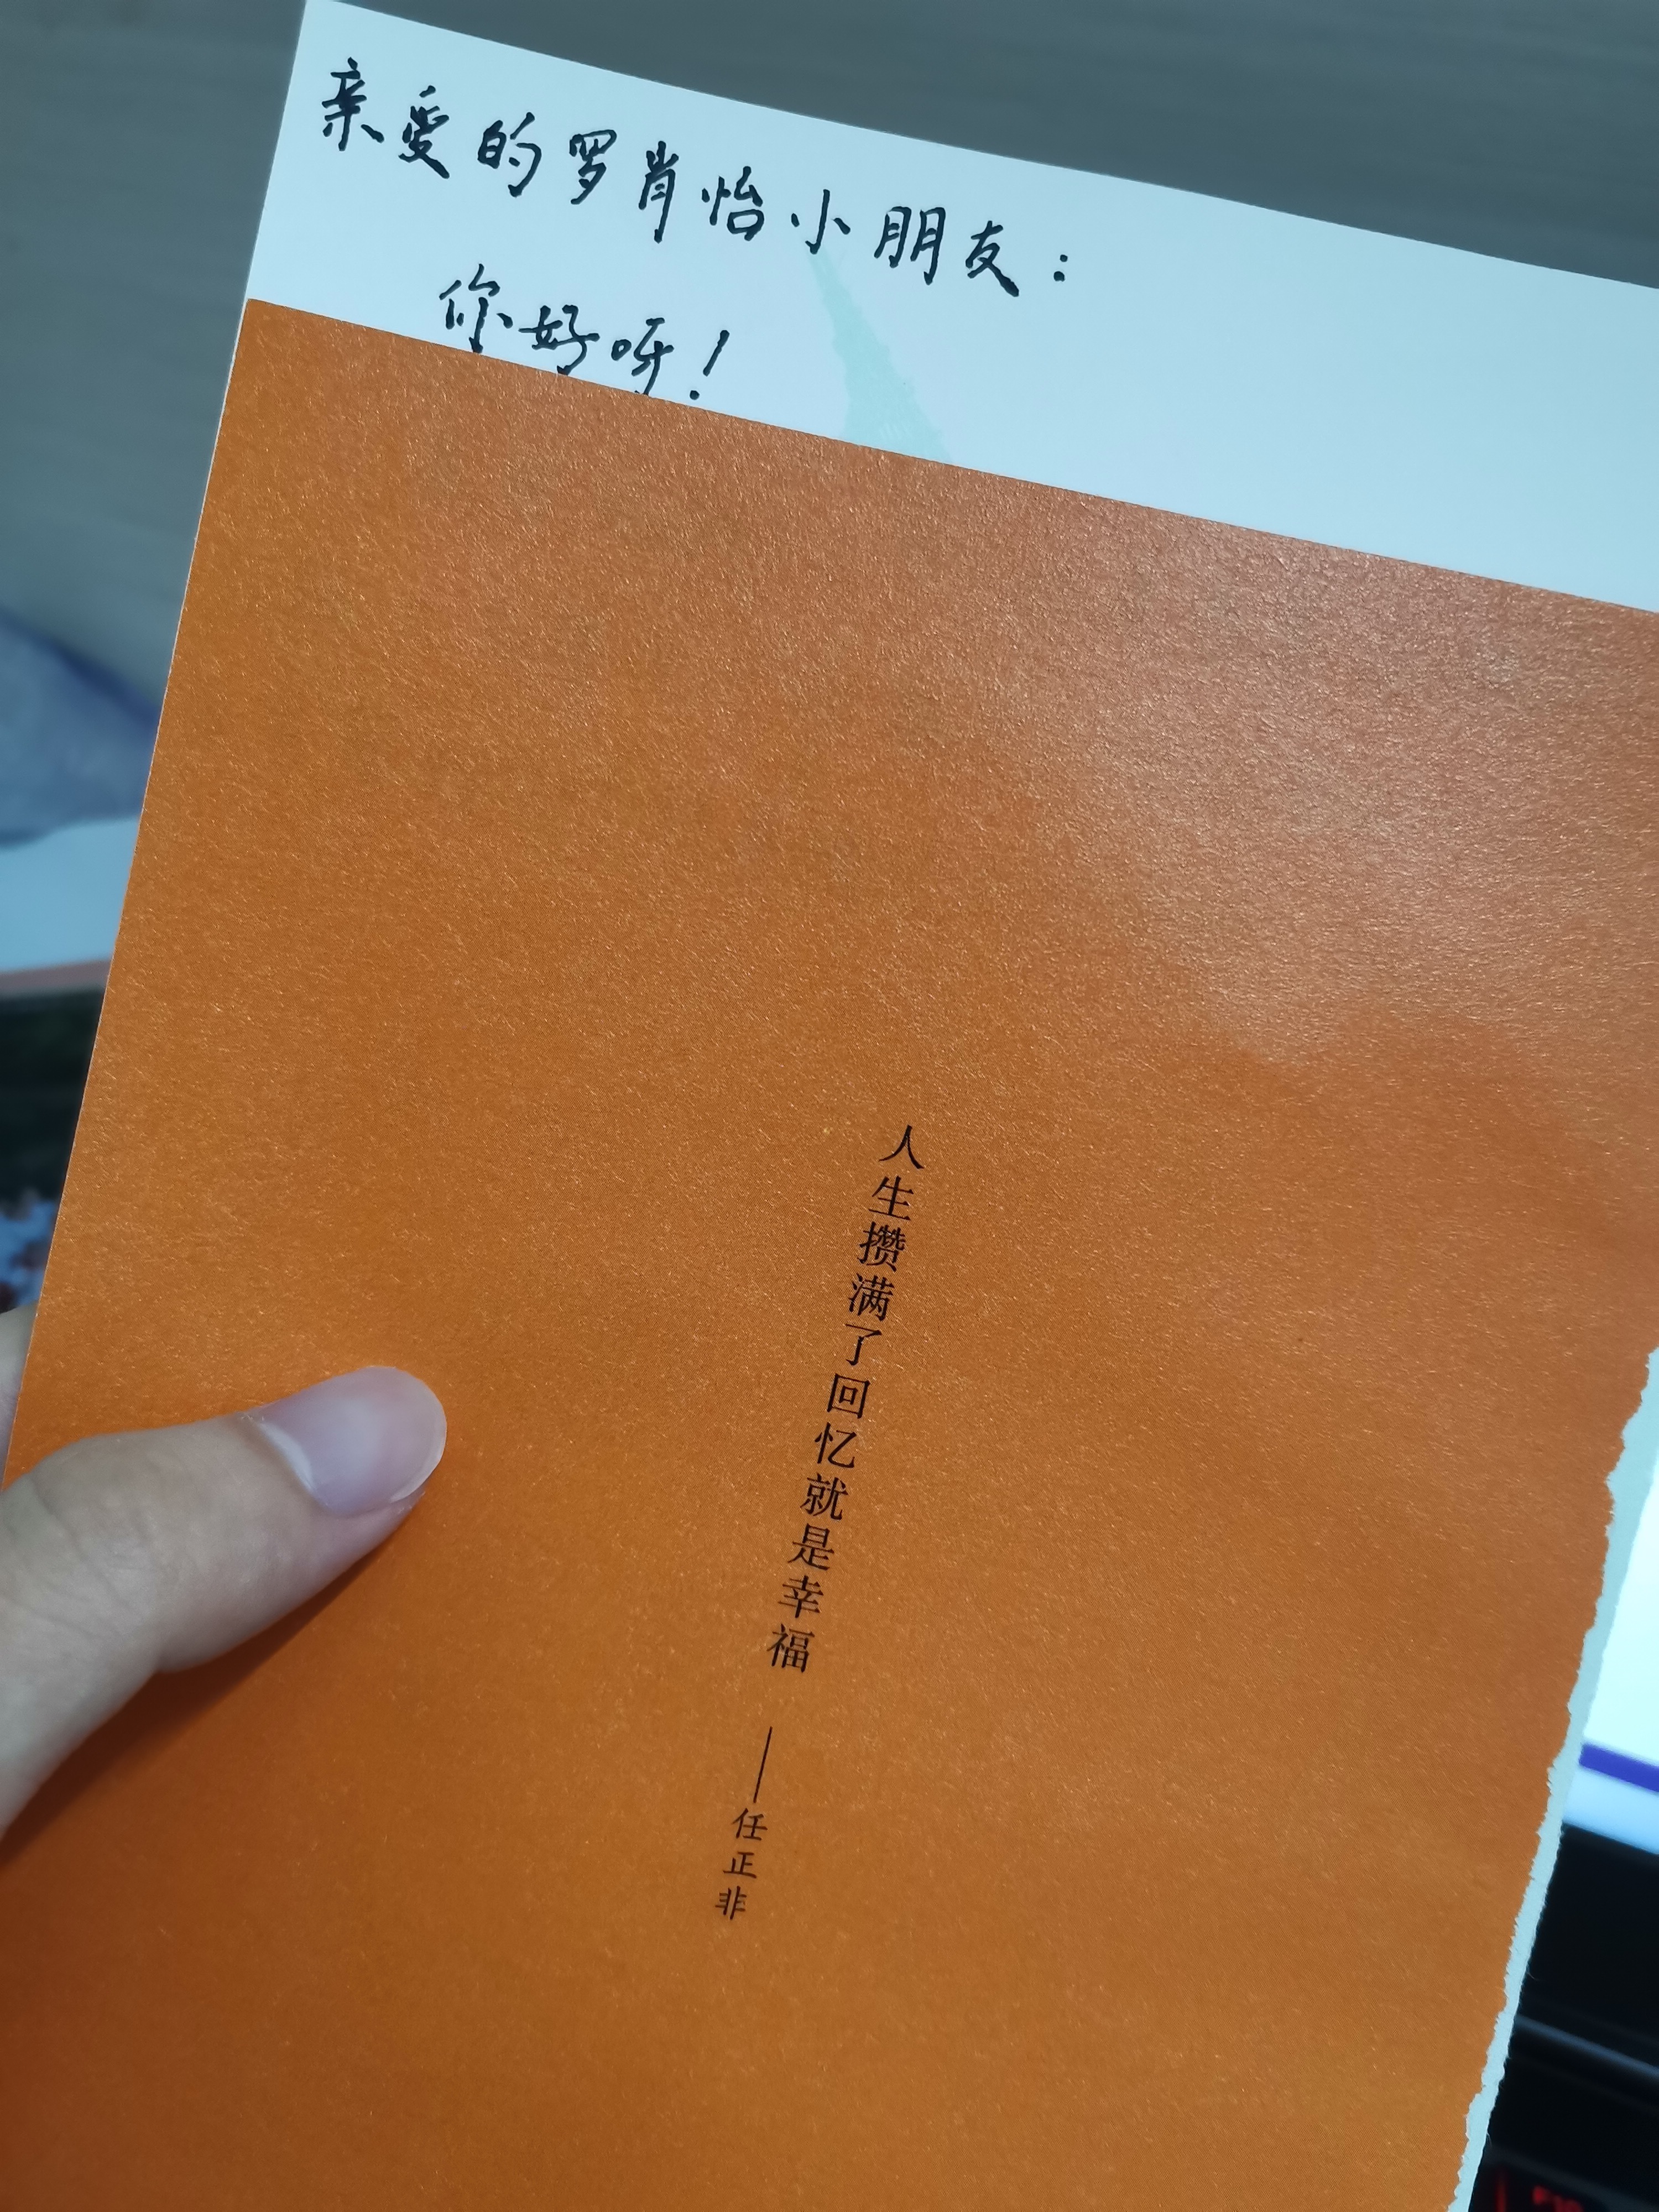 亲爱的罗肖怡小朋友：
你好呀！
人生攒满了回忆就是幸福 ——任正非